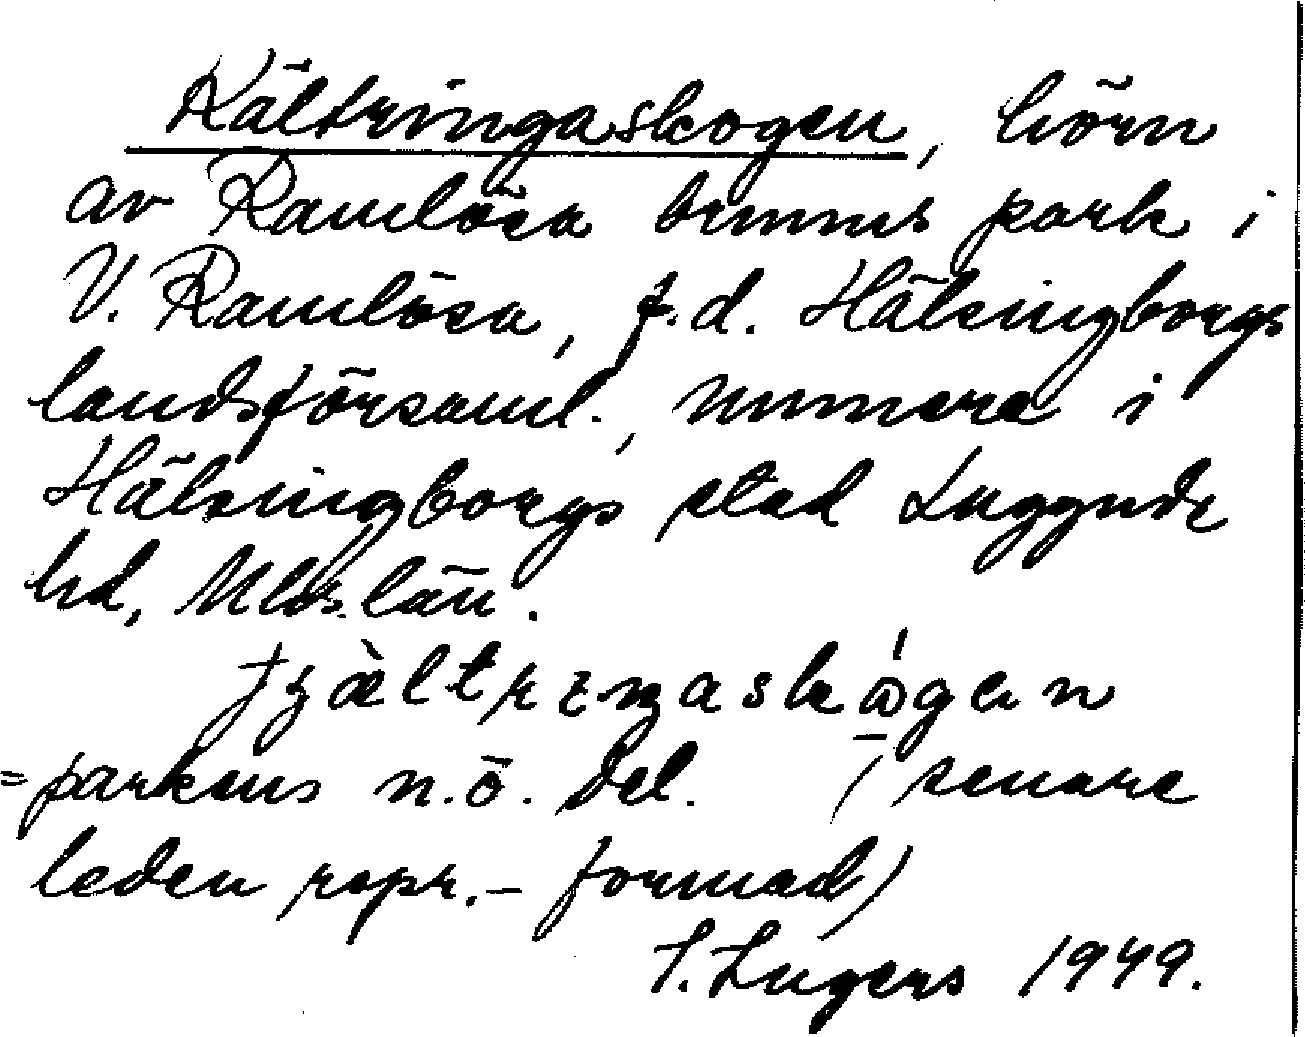 Kältringaskogen, hörn
av Ramlösa brunns park i
V. Ramlösa, f.d. Hälsingborgs
landsförsaml., numera i
Hälsingborgs stad Luggude
hd, Mlhs. län.
tjältringaskogen
= parkens n.ö. del. (senare
leden repr.- formad)
S. Ingers 1949.